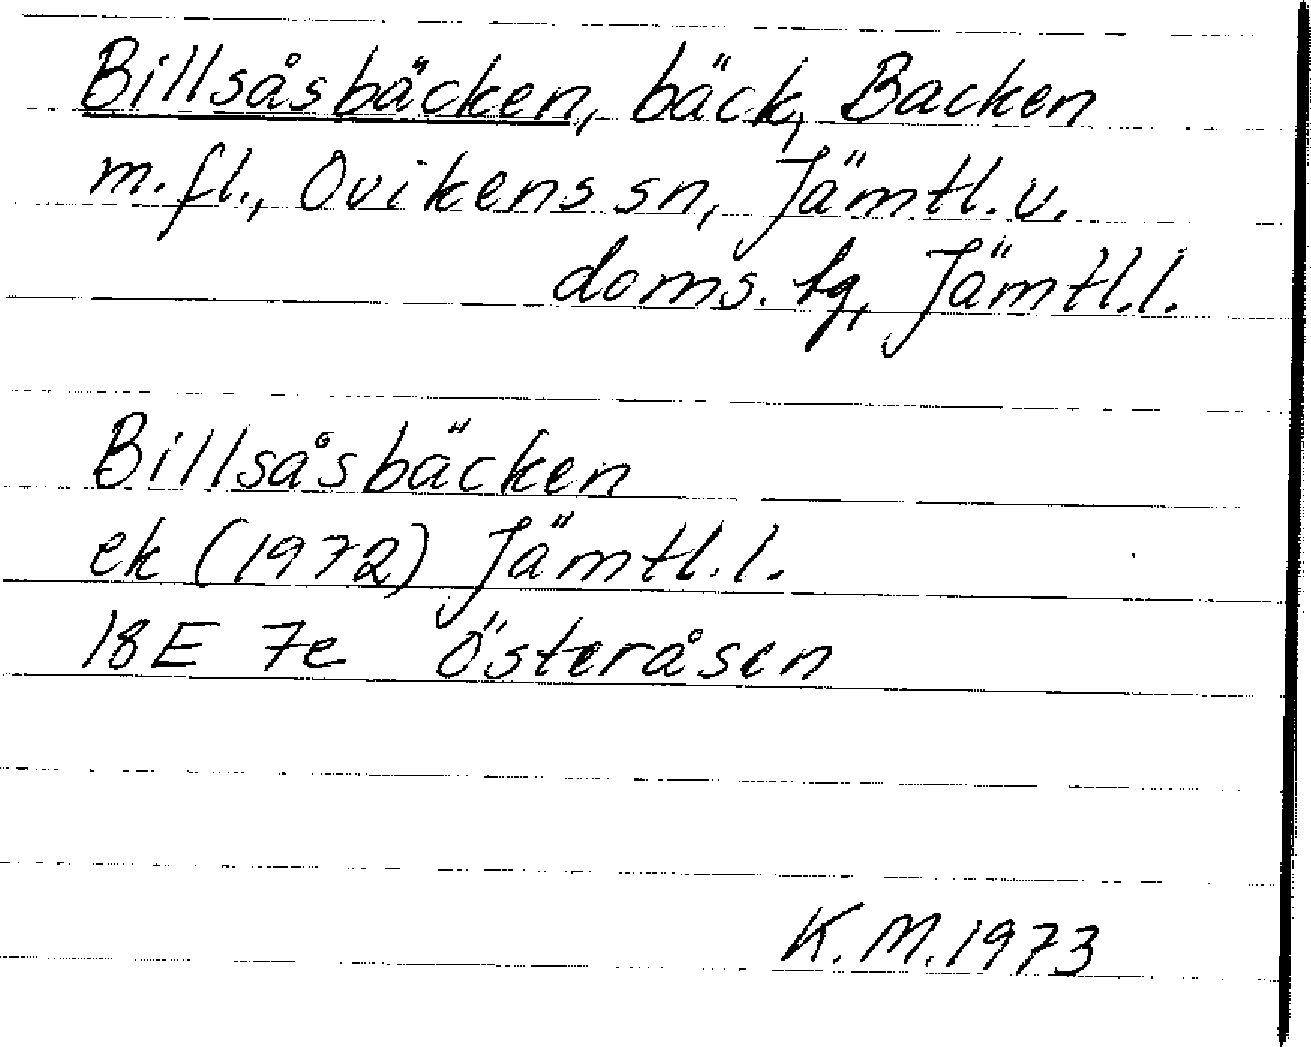 Billsåsbäcken, bäck, Backen
m.fl., Ovikens sn, Jämtl. v.
doms. tg, Jämtl.l.
Billsåsbäcken
ek (1972) Jämtl.l.
18E 7e Österåsen
K.M.1973